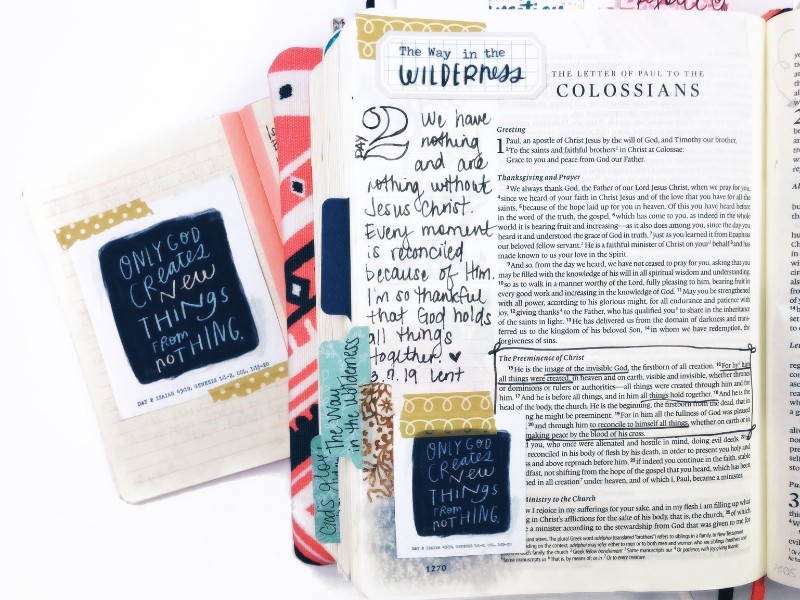 The Way in the
WILDERNESS
THE LETTER OF PAUL TO THE
COLOSSIANS
DAY 2
We have
nothing
and are
nothing without
Jesus Christ.
Every moment
is reconciled
because of Him.
I'm so thankful
that God holds
all things
together. ♥
3.7.19 Lent
Greeting
1 Paul, an apostle of Christ Jesus by the will of God, and Timothy our brother,
2 To the saints and faithful brothers in Christ at Colossae:
Grace to you and peace from God our Father.
Thanksgiving and Prayer
3 We always thank God, the Father of our Lord Jesus Christ, when we pray for you,
4 since we heard of your faith in Christ Jesus and of the love that you have for all the
saints, 5 because of the hope laid up for you in heaven. Of this you have heard before
in the word of the truth, the gospel, 6 which has come to you, as indeed in the whole
world it is bearing fruit and increasing—as it also does among you, since the day you
heard it and understood the grace of God in truth, 7 just as you learned it from Epaphras
our beloved fellow servant. He is a faithful minister of Christ on your behalf 8 and has
made known to us your love in the Spirit.
9 And so, from the day we heard, we have not ceased to pray for you, asking that you
may be filled with the knowledge of his will in all spiritual wisdom and understanding,
10 so as to walk in a manner worthy of the Lord, fully pleasing to him, bearing fruit in
every good work and increasing in the knowledge of God. 11 May you be strengthened
with all power, according to his glorious might, for all endurance and patience with
joy, 12 giving thanks to the Father, who has qualified you to share in the inheritance
of the saints in light. 13 He has delivered us from the domain of darkness and trans-
ferred us to the kingdom of his beloved Son, 14 in whom we have redemption, the
forgiveness of sins.
The Preeminence of Christ
15 He is the image of the invisible God, the firstborn of all creation. 16 For by him
all things were created, in heaven and on earth, visible and invisible, whether thrones
or dominions or rulers or authorities—all things were created through him and for
him. 17 And he is before all things, and in him all things hold together. 18 And he is the
head of the body, the church. He is the beginning, the firstborn from the dead, that in
he might be preeminent. 19 For in him all the fullness of God was pleased
20 and through him to reconcile to himself all things, whether on earth or in
making peace by the blood of his cross.
you, who once were alienated and hostile in mind, doing evil deeds,
reconciled in his body of flesh by his death, in order to present you holy and
and above reproach before him, 23 if indeed you continue in the faith, stable
not shifting from the hope of the gospel that you heard, which has been
in all creation under heaven, and of which I, Paul, became a minister.
Ministry to the Church
I rejoice in my sufferings for your sake, and in my flesh I am filling up what
in Christ's afflictions for the sake of his body, that is, the church, 25 of which
a minister according to the stewardship from God that was given to me for
1270
ONLY GOD
CREATES
NEW
THINGS
FROM
NOTHING.
DAY 2 ISAIAH 43:19, GENESIS 1:1-2, COL. 1:15-20
The Way
in the Wilderness
God's glory
ONLY GOD
CREATES
NEW
THINGS
FROM
NOTHING.
DAY 2 ISAIAH 43:19, GENESIS 1:1-2, COL. 1:15-20